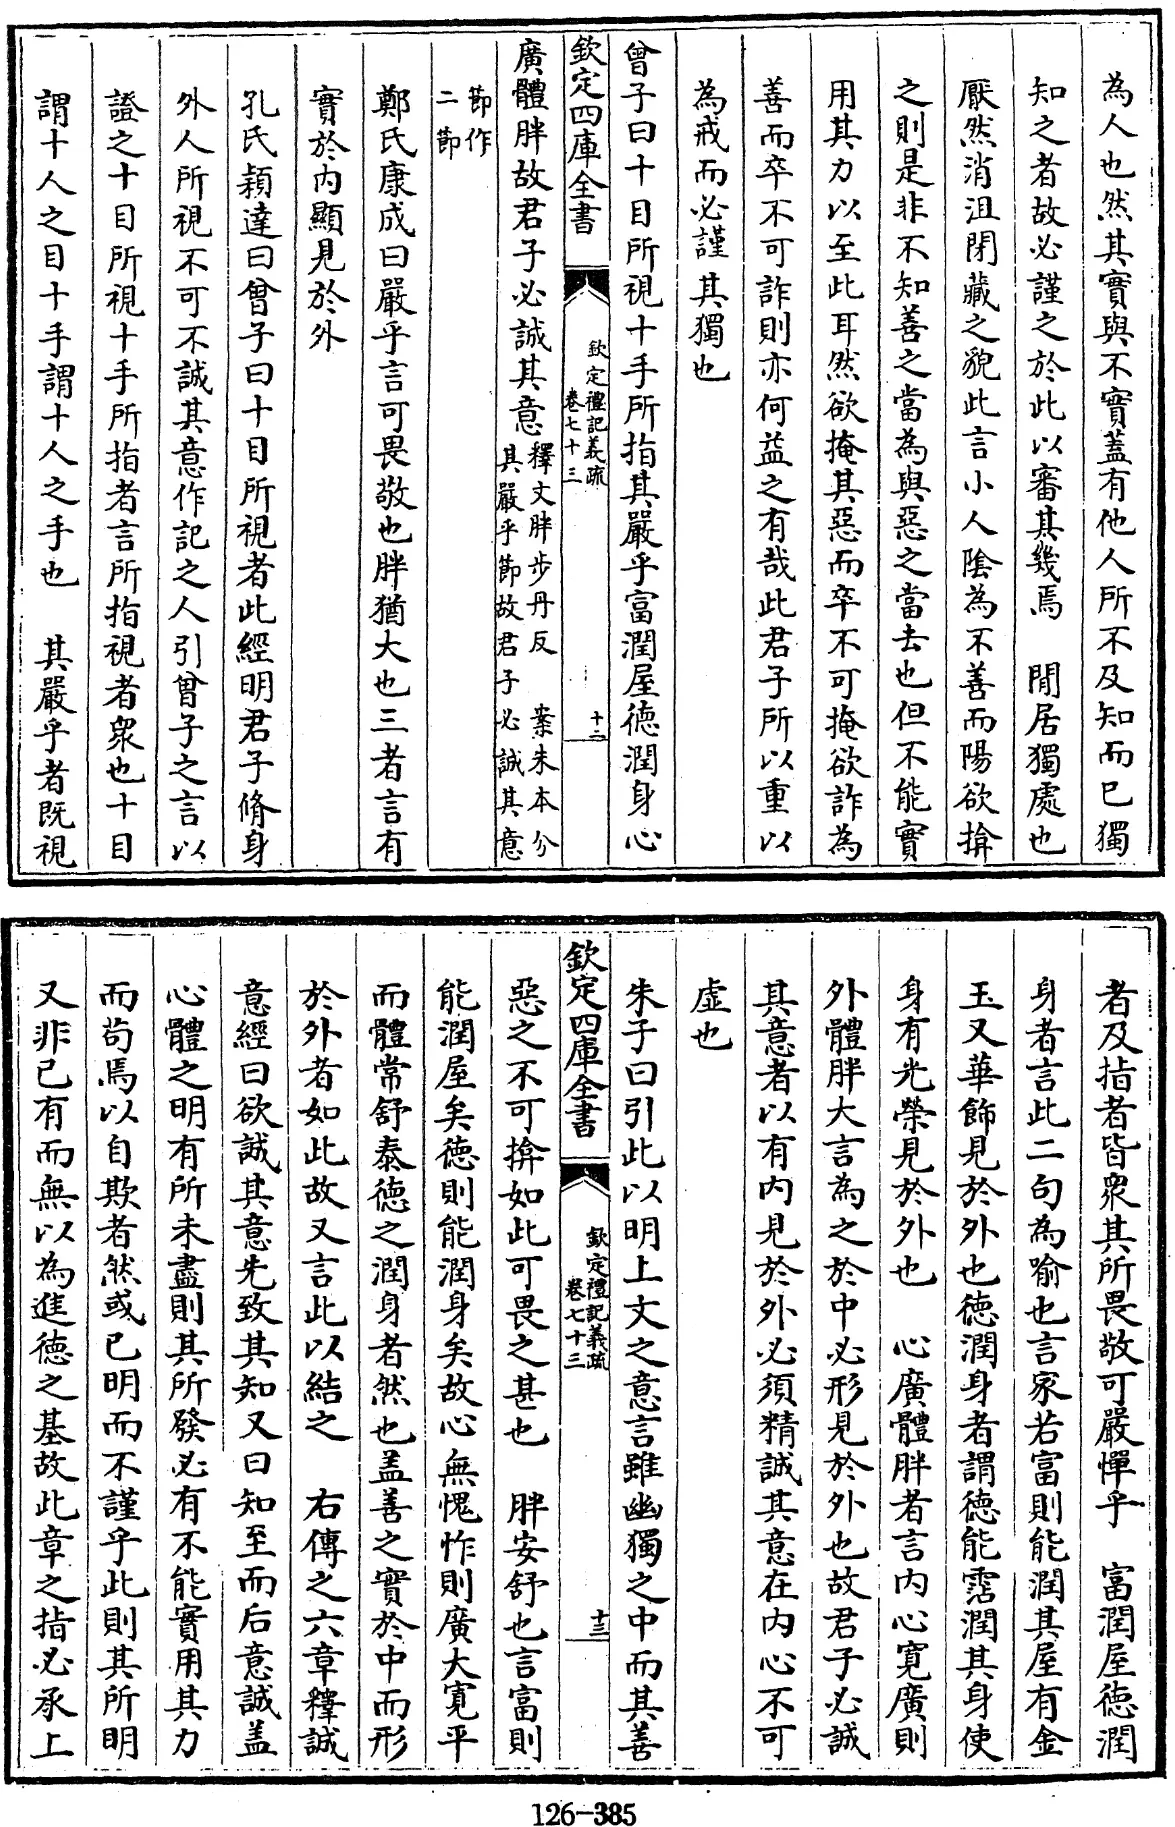 為人也然其實與不實蓋有他人所不及知而已獨
知之者故必謹之於此以審其幾焉　閒居獨處也
厭然消沮閉藏之貌此言小人陰為不善而陽欲揜
之則是非不知善之當為與惡之當去也但不能實
用其力以至此耳然欲掩其惡而卒不可掩欲詐為
善而卒不可詐則亦何益之有哉此君子所以重以
為戒而必謹其獨也
曾子曰十目所視十手所指其嚴乎富潤屋德潤身心
欽定四庫全書
欽定禮記義疏
卷七十三
十二
廣體胖故君子必誠其意
釋文胖步丹反　案朱本分
其嚴乎節故君子必誠其意
節作
二節
鄭氏康成曰嚴乎言可畏敬也胖猶大也三者言有
實於內顯見於外
孔氏穎達曰曾子曰十目所視者此經明君子脩身
外人所視不可不誠其意作記之人引曾子之言以
證之十目所視十手所指者言所指視者衆也十目
謂十人之目十手謂十人之手也　其嚴乎者既視
者及指者皆衆其所畏敬可嚴憚乎　富潤屋德潤
身者言此二句為喻也言家若富則能潤其屋有金
玉又華飾見於外也德潤身者謂德能霑潤其身使
身有光榮見於外也　心廣體胖者言內心寬廣則
外體胖大言為之於中必形見於外也故君子必誠
其意者以有內見於外必須精誠其意在內心不可
虛也
朱子曰引此以明上文之意言雖幽獨之中而其善
欽定四庫全書
欽定禮記義疏
卷七十三
十三
惡之不可揜如此可畏之甚也　胖安舒也言富則
能潤屋矣德則能潤身矣故心無愧怍則廣大寬平
而體常舒泰德之潤身者然也蓋善之實於中而形
於外者如此故又言此以結之　右傳之六章釋誠
意經曰欲誠其意先致其知又曰知至而后意誠蓋
心體之明有所未盡則其所發必有不能實用其力
而苟焉以自欺者然或已明而不謹乎此則其所明
又非已有而無以為進德之基故此章之指必承上
126-385